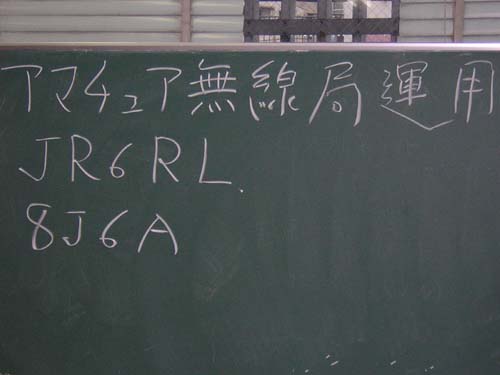 アマチュア無線局運用
JR6RL.
8J6A